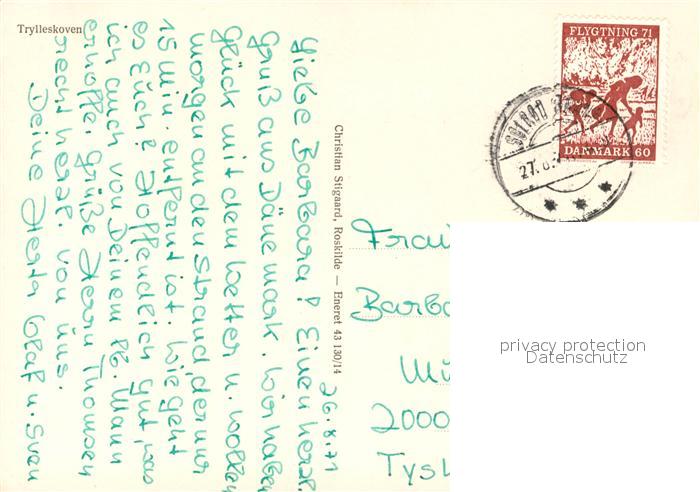 Trylleskoven
FLYGTNING 71
DANMARK 60
27.8.
26.8.71
Liebe Barbara! Einen herzl.
Gruß aus Dänemark. Wir haben
Glück mit dem Wetter u. wollen
morgen an den Strand, der nur
15 min. entfernt ist. Wie geht
es Euch? Hoffendlich gut, was
ich auch von Deinem Mann
erhoffe. Grüße Herrn Thomsen
recht herzl. von uns.
Deine Herta Olaf u. Sven
Christian Stigaard, Roskilde — Eneret 43 130/14
Frau
Barba
Mü
2000
Tysk
privacy protection
Datenschutz